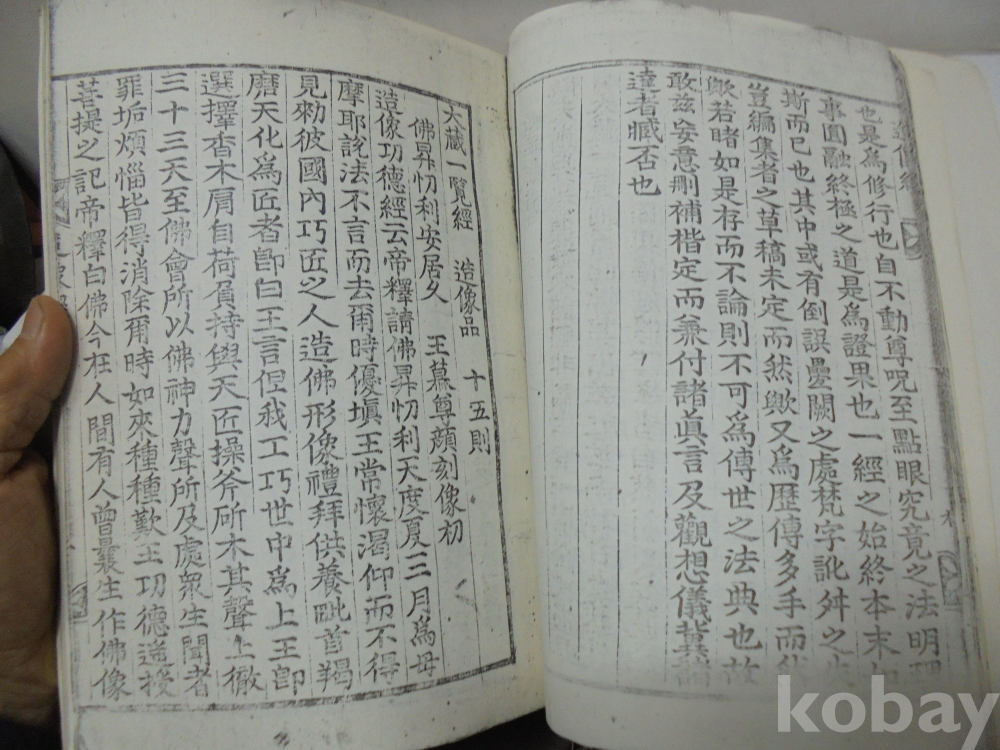 也是爲修行也自不動尊呪至點眼究竟之法明
事圓融終極之道是爲證果也一經之始終本末
斯而已也其中或有倒誤疊闕之處梵字訛舛之
豈編集者之草稿未定而然歟又爲歷傳多手而
歟若睹如是存而不論則不可爲傳世之法典也故
敢玆妄意刪補楷定而兼付諸眞言及觀想儀冀諸
達者臧否也
大藏一覽經 造像品 十五則
佛昇忉利安居久 王慕尊顔刻像初
造像功德經云帝釋請佛昇忉利天度夏三月爲母
摩耶說法不言而去爾時優塡王常懷渴仰而不得
見勑彼國內巧匠之人造佛形像禮拜供養毗首羯
磨天化爲匠者卽白王言但我工巧世中爲上王卽
選擇香木肩自荷負持與天匠操斧斫木其聲上徹
三十三天至佛會所以佛神力聲所及處衆生聞者
罪垢煩惱皆得消除爾時如來種種歎王功德遂授
菩提之記帝釋白佛今在人間有人曾曩生作佛像
kobay